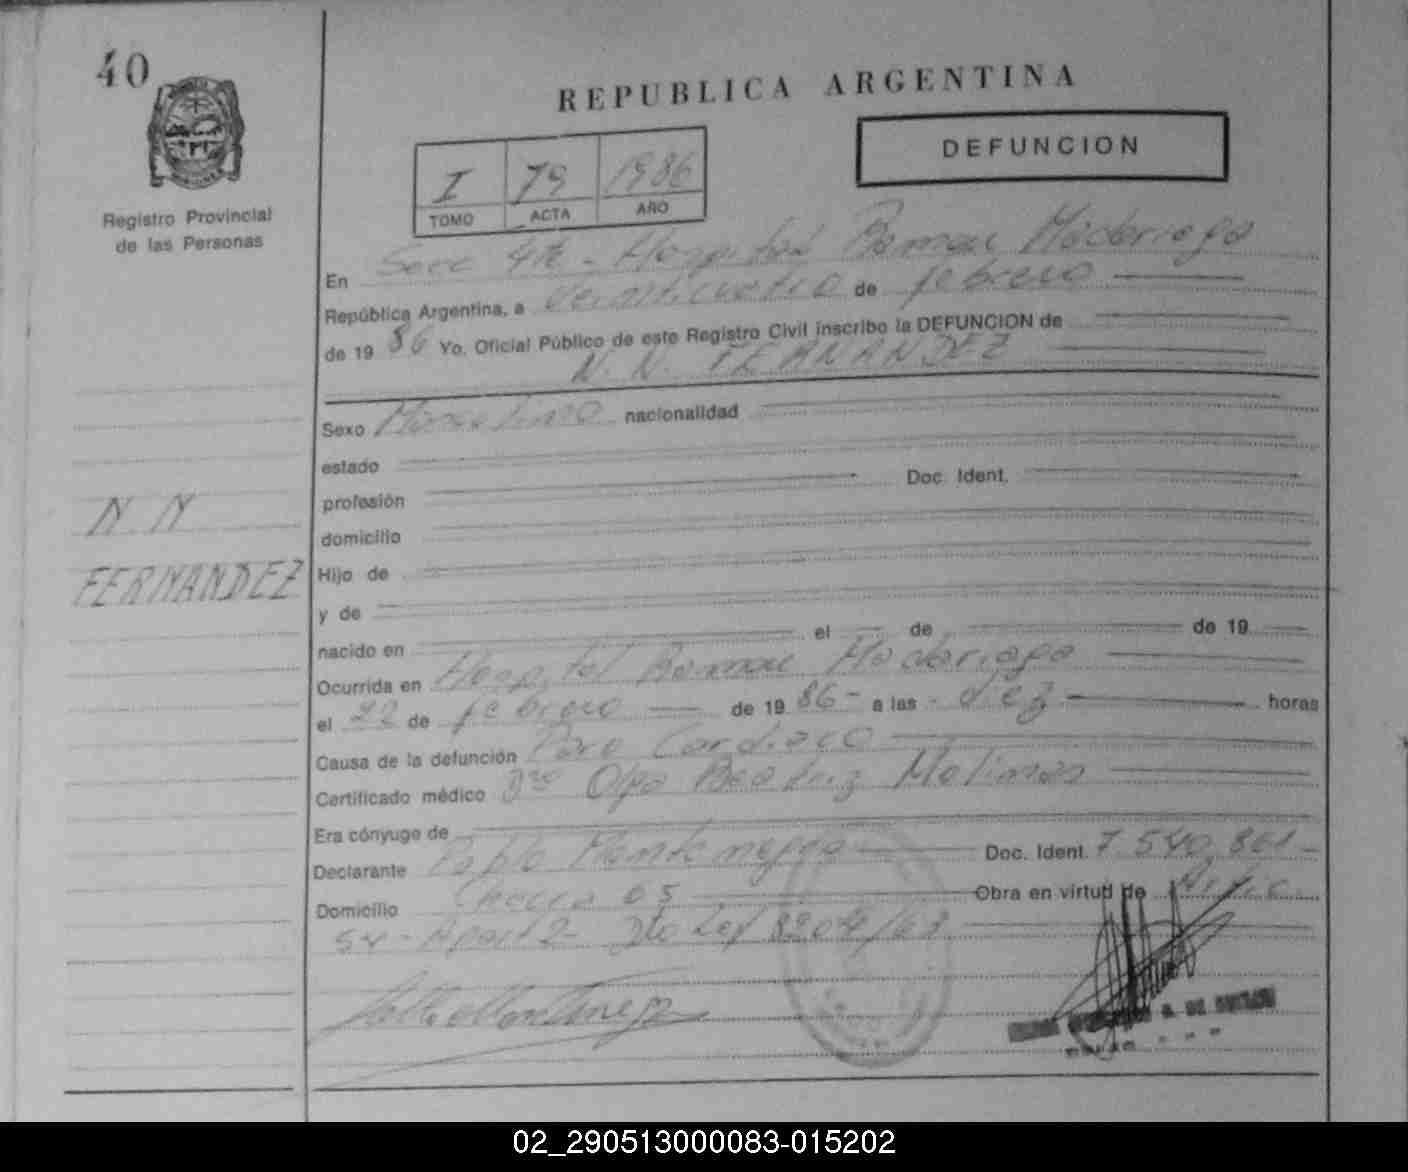 40
REPUBLICA ARGENTINA
DEFUNCION
I 79 1986
TOMO ACTA AÑO
Registro Provincial
de las Personas
En Secc 4ta - Hospital Ramon Madariaga
República Argentina, a veinticuatro de febrero
de 19 86 Yo. Oficial Público de este Registro Civil inscribo la DEFUNCION de
N. N. FERNANDEZ
Sexo Masculino nacionalidad
estado
profesión Doc. Ident.
N. N
domicilio
FERNANDEZ
Hijo de
y de
nacido en el de de 19
Ocurrida en Hospital Ramon Madariaga
el 22 de febrero de 19 86 - a las diez horas
Causa de la defunción Paro Cardiaco
Certificado médico Dra Olga Beatriz
Era cónyuge de
Declarante Pablo Montenegro Doc. Ident. 7.540.861 -
Domicilio Chacra 65 Obra en virtud de Artic.
54 - Apart 2 Dto Ley 8204/63
02_290513000083-015202